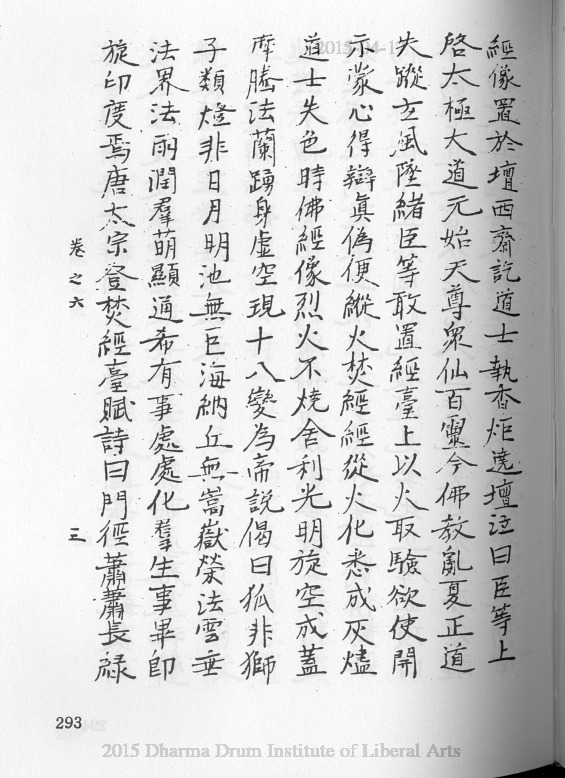 經像置於壇西齋訖道士執香炬遶壇泣曰臣等上
啓太極大道元始天尊眾仙百靈今佛教亂夏正道
失蹤玄風墜緒臣等敢置經臺上以火取驗欲使開
示蒙心得辯眞偽便縱火焚經經從火化悉成灰燼
道士失色時佛經像烈火不燒舍利光明旋空成蓋
摩騰法蘭踴身虛空現十八變為帝說偈曰狐非獅
子類燈非日月明池無巨海納丘無嵩嶽榮法雲垂
法界法雨潤羣萌顯通希有事處處化羣生事畢即
旋印度焉唐太宗登焚經臺賦詩曰門徑蕭蕭長綠
卷之六
三
293
2015 Dharma Drum Institute of Liberal Arts